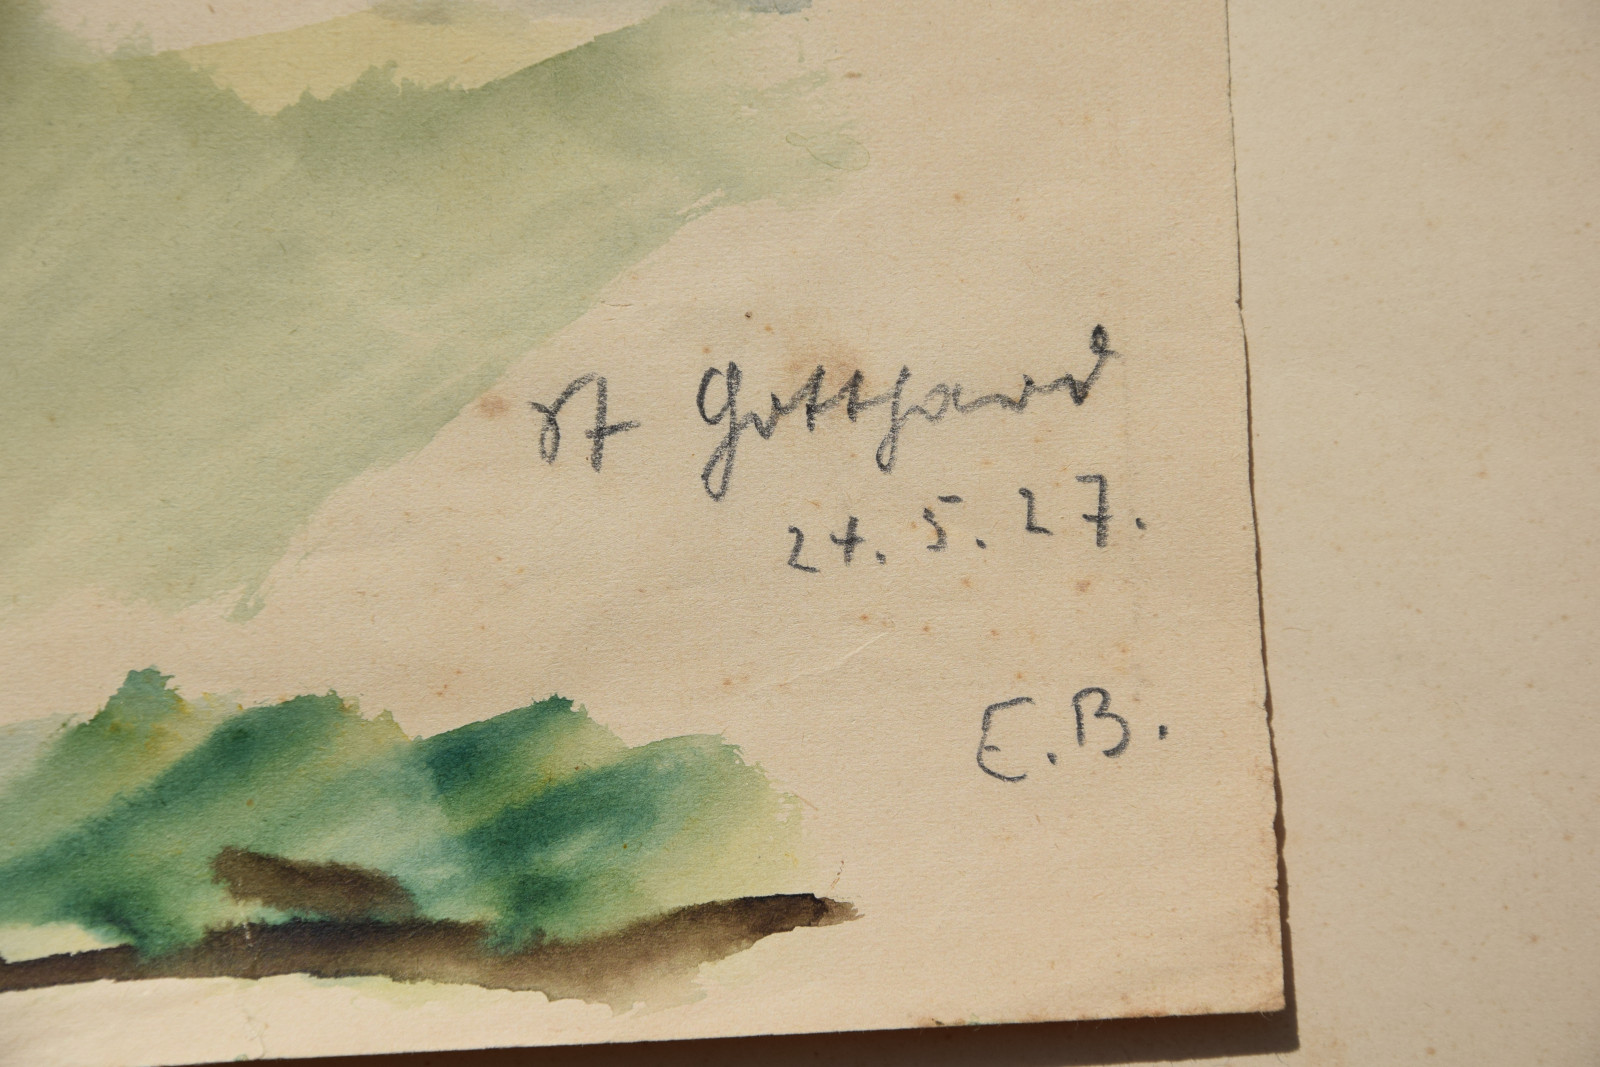 St Gotthard
24. 5. 27.
E. B.